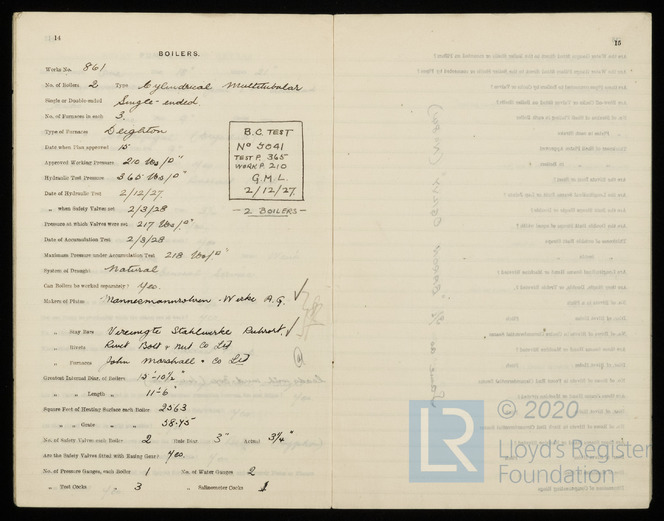 14
BOILERS.
Works No. 861
No. of Boilers 2 Type Cylindrical Multitubular
Single or Double-ended Single-ended.
No. of Furnaces in each 3.
Type of Furnaces Deighton
Date when Plan approved
Approved Working Pressure 210 lbs/□"
Hydraulic Test Pressure 365 lbs/□"
Date of Hydraulic Test 2/12/27
„ when Safety Valves set 2/3/28
Pressure at which Valves were set 217 lbs/□"
Date of Accumulation Test 2/3/28
Maximum Pressure under Accumulation Test 218 lbs/□"
System of Draught Natural
Can Boilers be worked separately? Yes.
Makers of Plates Mannesmannrohren-Werke A.G. ✓
„ Stay Bars Vereinigte Stahlwerke Ruhrort. ✓
„ Rivets Rivet Bolt & Nut Co Ltd
„ Furnaces John Marshall & Co Ltd
Greatest Internal Diam. of Boilers 15'-10½"
„ „ Length „ 11'-6"
Square Feet of Heating Surface each Boiler 2563
„ „ Grate „ „ 58.45
No. of Safety Valves each Boiler 2 Rule Diam 3" Actual 3¼"
Are the Safety Valves fitted with Easing Gear? Yes.
No. of Pressure Gauges, each Boiler 1 No. of Water Gauges 2
„ Test Cocks „ 3 „ Salinometer Cocks 1
B.C. TEST
No 5041
TEST P. 365
WORK P. 210
G.M.L.
2/12/27
— 2 BOILERS —
15
LR
© 2020
Lloyd's Register
Foundation